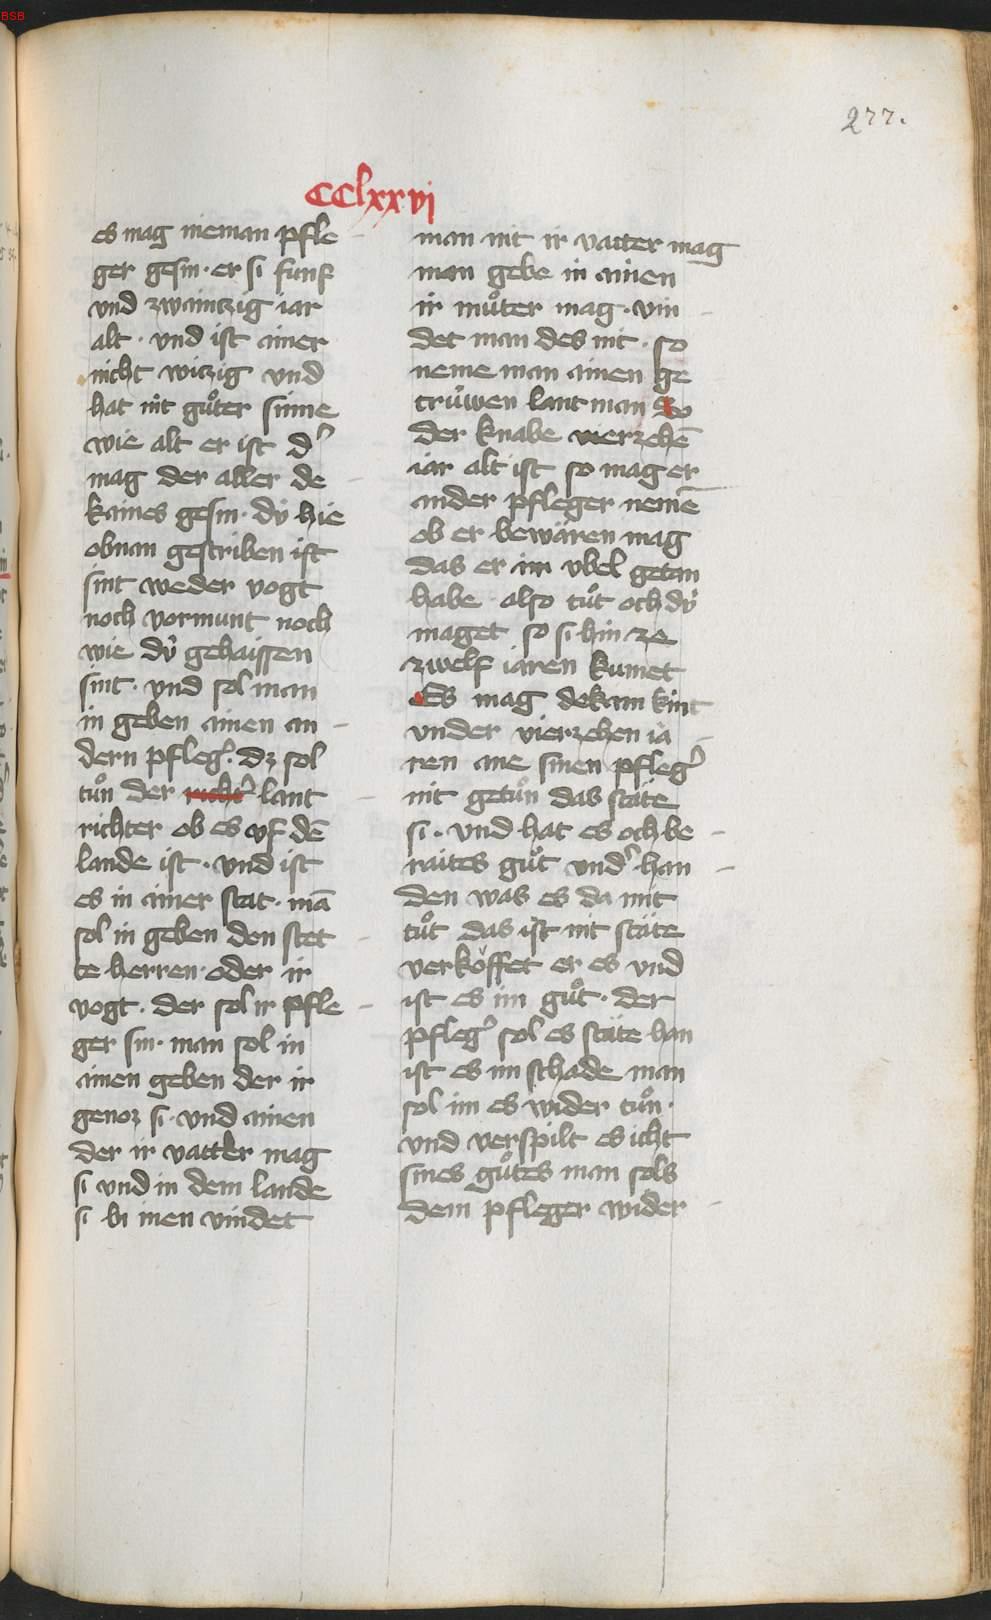 BSB
277.
CClxxvi
es mag nieman pfle
ger gesin · er si funf
vnd zwaintzig iar
alt · vnd ist ainer
nicht witzig vnd
hat nit guͦter sinne
wie alt er ist d᾽
mag der aller de
kaines gesin · dv̍ hie
obnan gescriben ist
sint weder vogt
noch vormunt noch
wie dv̍ gehaissen
sint · vnd sol man
in geben ainen an
dern pfleg᾽ · dz sol
tuͦn der richt᾽ lant
richter ob es vf dē
lande ist · vnd ist
es in ainer stat · mā
sol in geben den stet
te herren · oder ir
vogt · der sol ir pfle
ger sin · man sol in
ainen geben der ir
genoz si · vnd ainen
der ir vatter mag
si vnd in dem lande
si bi inen vindet
man nit ir vatter mag
man gebe in ainen
ir muͦter mag · vin
det man des nit · so
neme man ainen ge
trúwen lantman So
der knabe vierzehē
iar alt ist so mag er
ander pfleger nemē
ob er bewären mag
das er im vbel getan
habe · also tuͦt och dv̍
maget so si hin ze
zwelf iaren kumet
Es mag dekain kint
vnder vierzehen ia
ren ane sinen pfleg᾽
nit getuͦn das stäte
si · vnd hat es och be
raites guͦt vnd᾽ han
den was es da mit
tuͦt das ist nit stäte
verköffet er es vnd
ist es im guͦt · der
pfleg᾽ sol es stäte han
ist es im schade man
sol im es wider tuͦn ·
vnd verspilt es icht
sines guͦtes man sols
dem pfleger wider